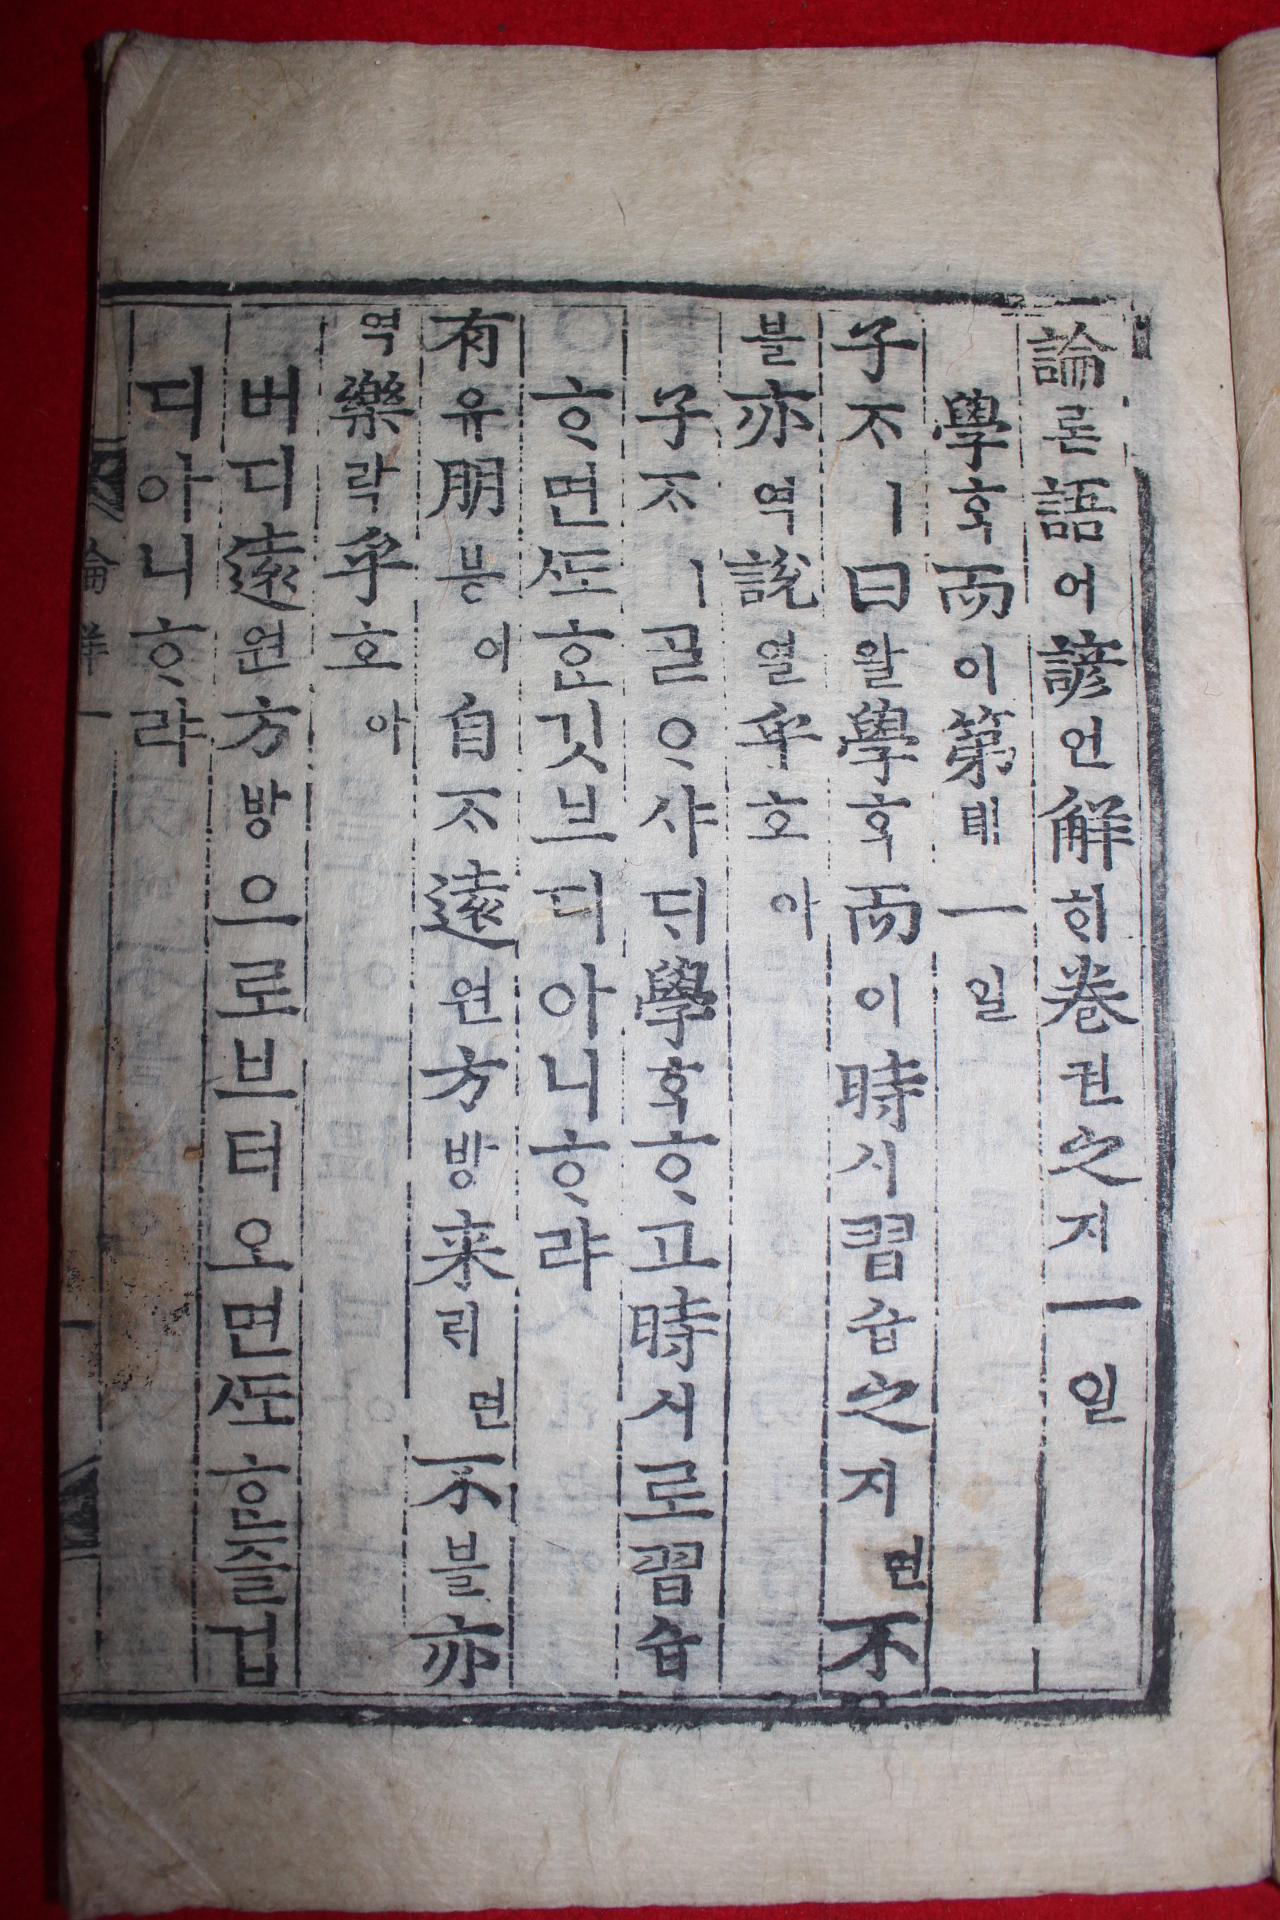 論론語어諺언解ᄒᆡ卷권之지一일
學ᄒᆞᆨ而이第뎨一일
子ᄌᆞㅣ曰왈學ᄒᆞᆨ而이時시習습之지면不
블亦역說열乎호아
子ᄌᆞㅣᄀᆞᆯᄋᆞ샤ᄃᆡ學ᄒᆞᆨᄒᆞ고時시로習습
ᄒᆞ면ᄯᅩᄒᆞᆫ깃브디아니ᄒᆞ랴
○
有유朋붕이自ᄌᆞ遠원方방来ᄅᆡ면不블亦
역樂락乎호아
버디遠원方방으로브터오면ᄯᅩᄒᆞᆫ즐겁
디아니ᄒᆞ랴
論 解 一